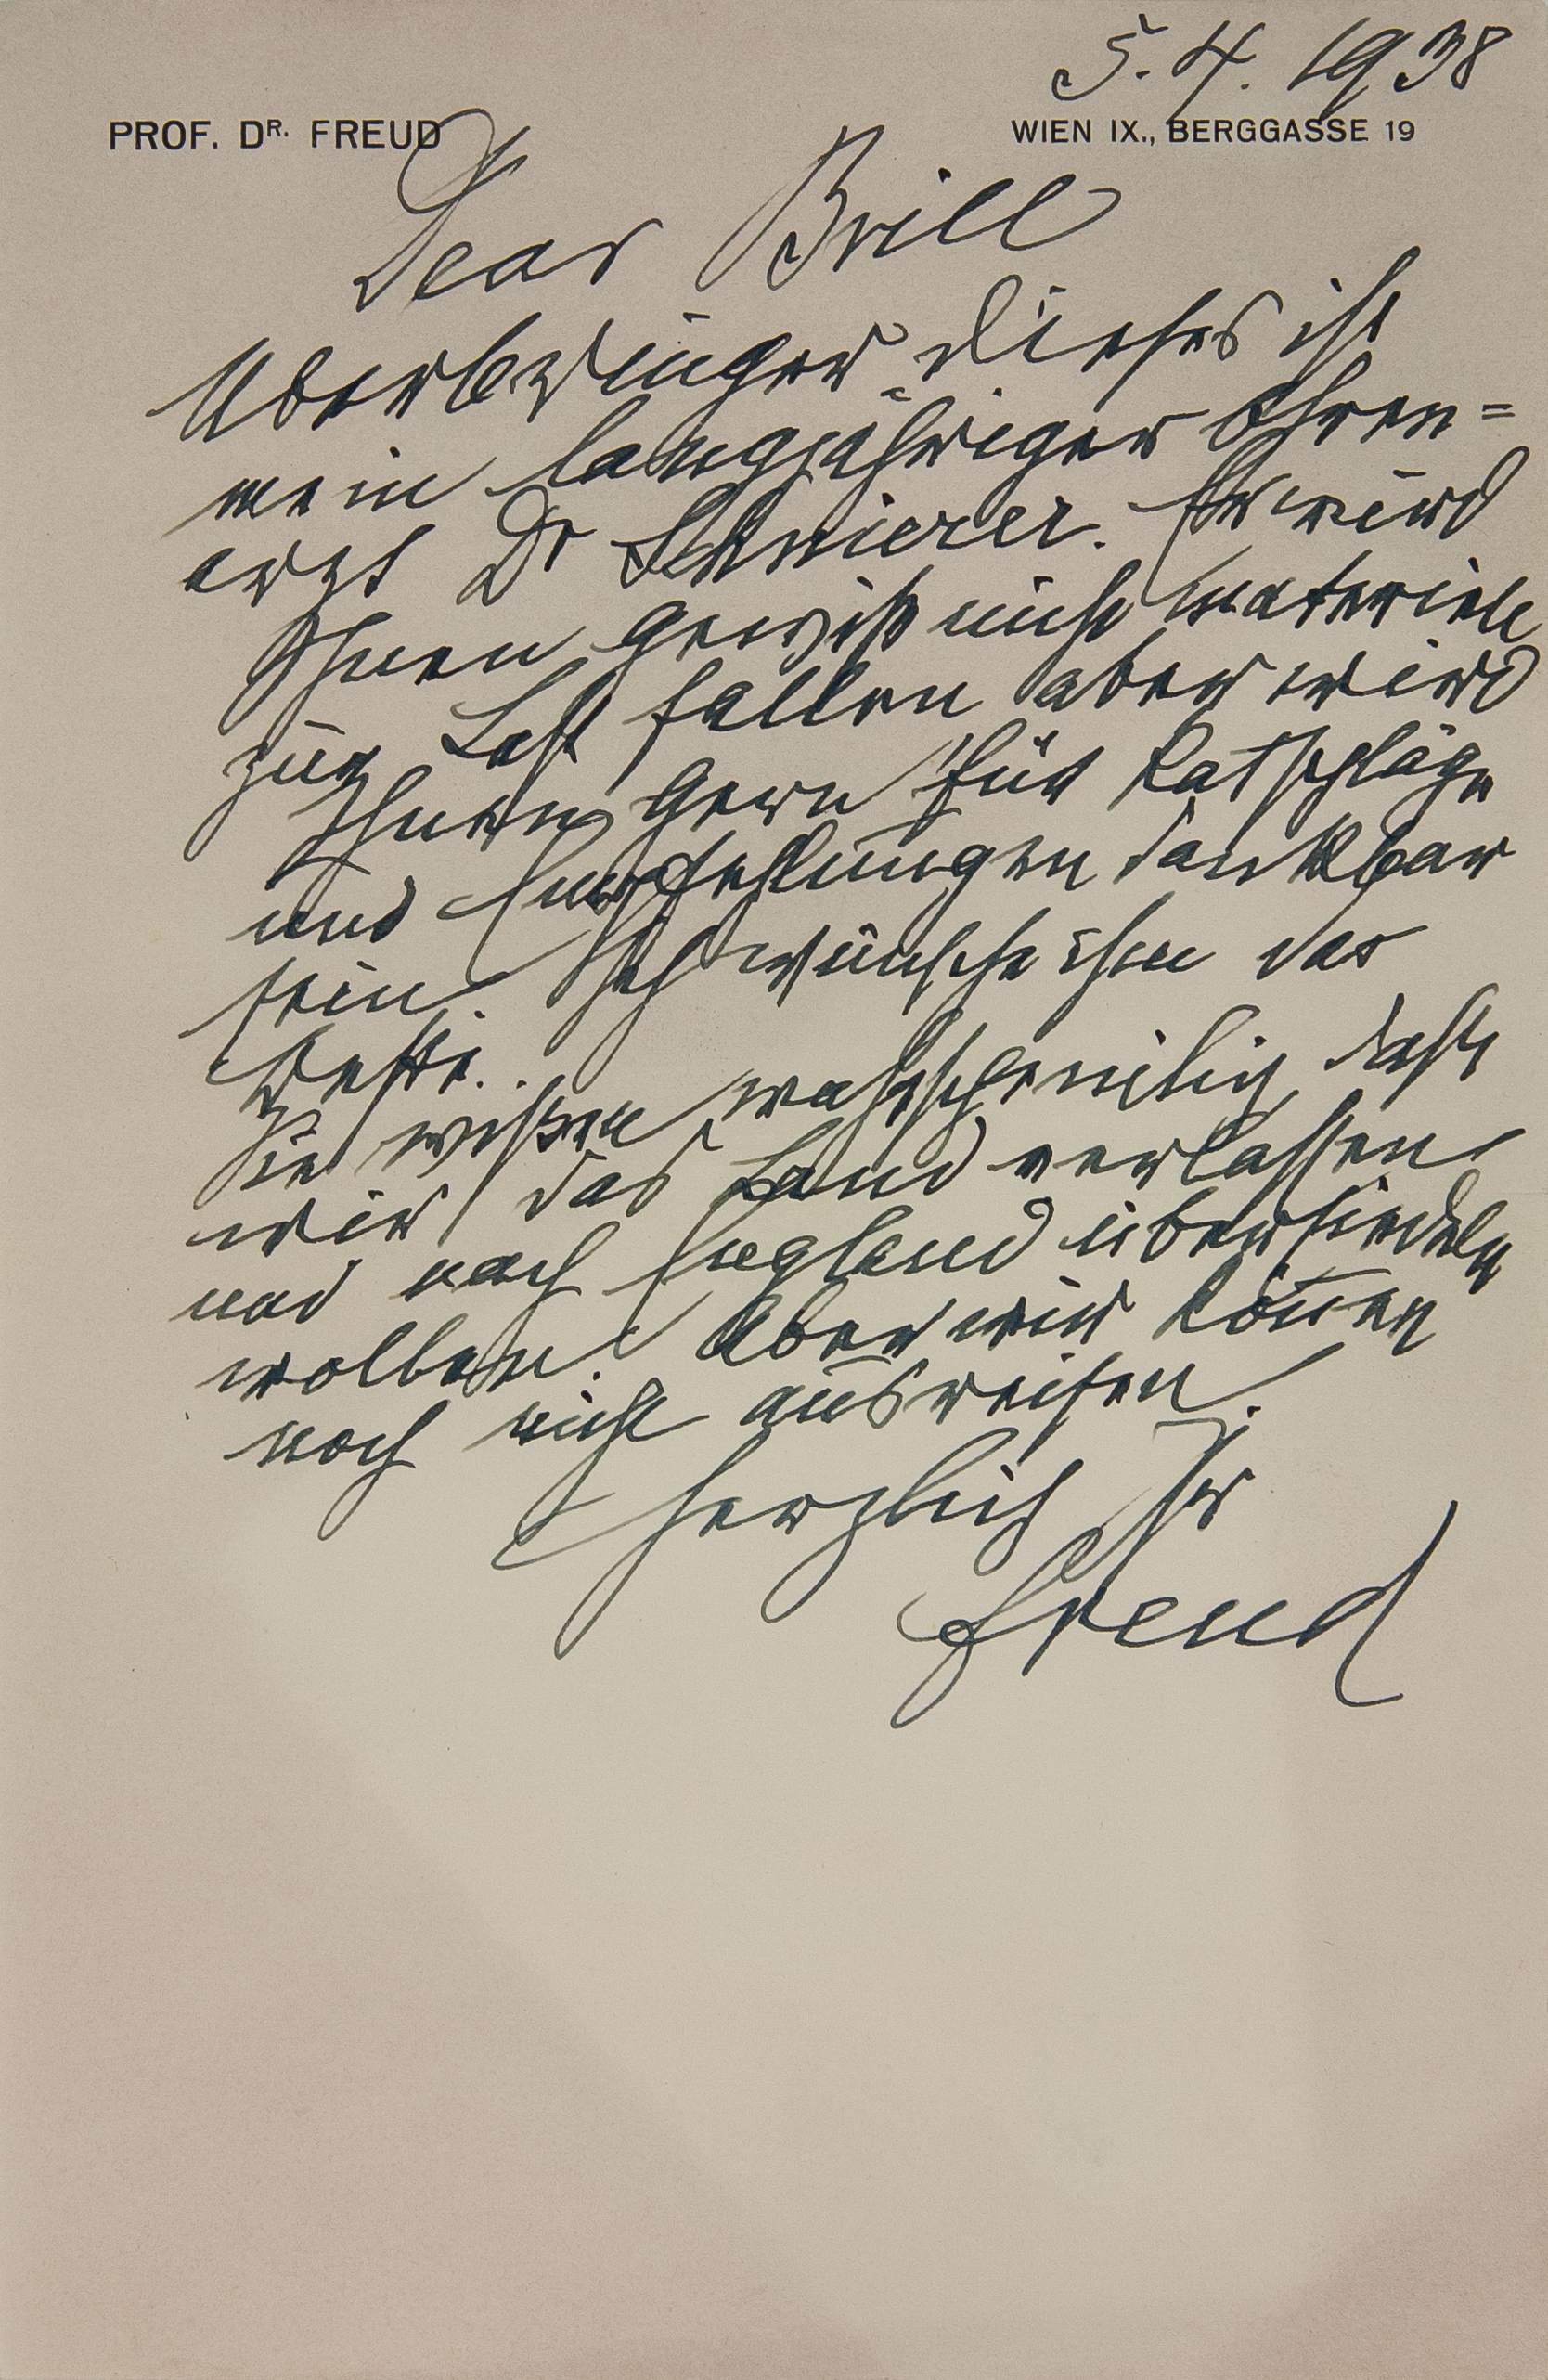 5. 4. 1938
PROF. DR. FREUD WIEN IX., BERGGASSE 19
Dear Brill
Überbringer dieses ist
mein langjähriger Ohren=
arzt Dr Schnierer. Er wird
Ihnen gewiß nicht materiell
zur Last fallen aber wird
Ihnen gern für Ratschläge
und Empfehlungen dankbar
sein. Ich wünsche ihm das
Beste.
Sie wissen wahrscheinlich, daß
wir das Land verlassen
und nach England übersiedeln
wollen. Aber wir können
noch nicht ausreisen.
Herzlich Ihr
Freud